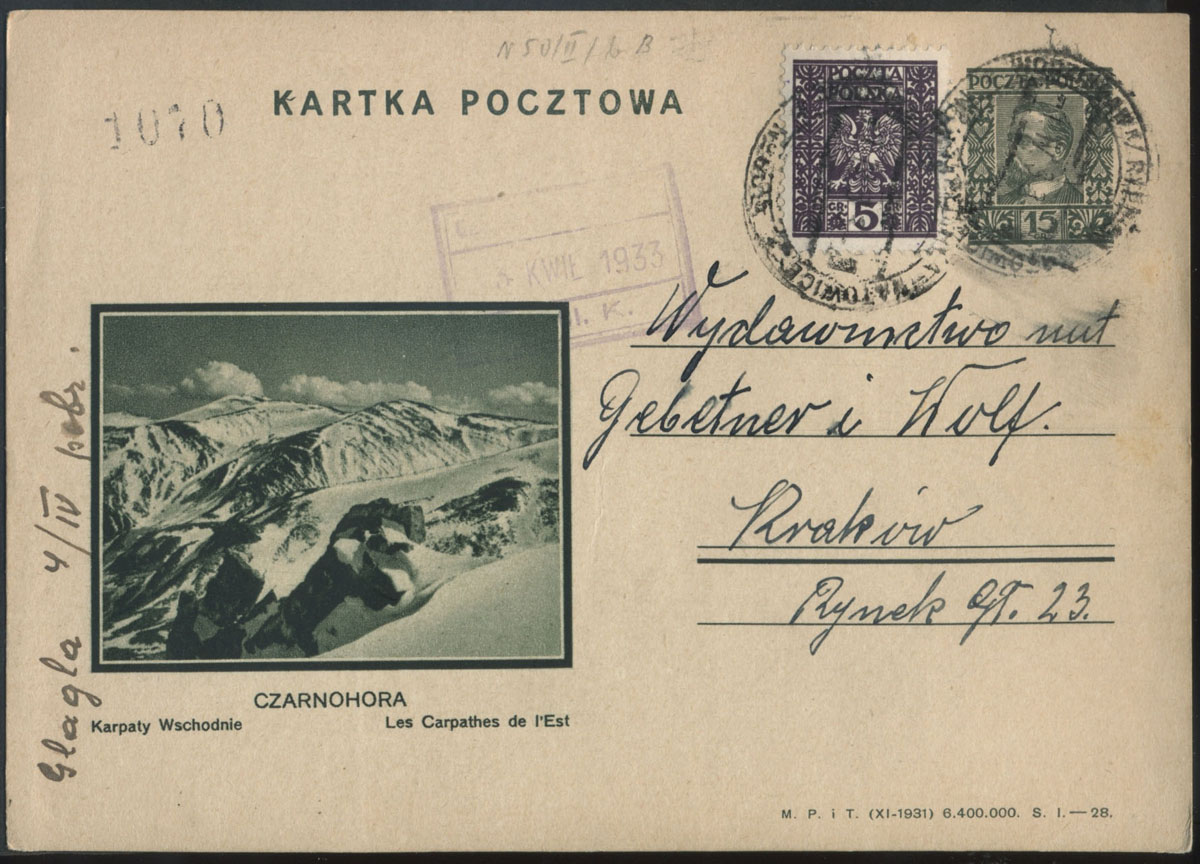 1070
KARTKA POCZTOWA
POCZTA
POLSKA
GR. 5 GR.
POCZTA POLSKA
15
KATOWICE
KWIE 1933
K.
Wydawnictwo nut
Gebetner i Wolf.
Kraków
Rynek Gł. 23.
Glagla 4/IV pobr.
CZARNOHORA
Karpaty Wschodnie
Les Carpathes de l'Est
M. P. i T. (XI-1931) 6.400.000. S. I.—28.